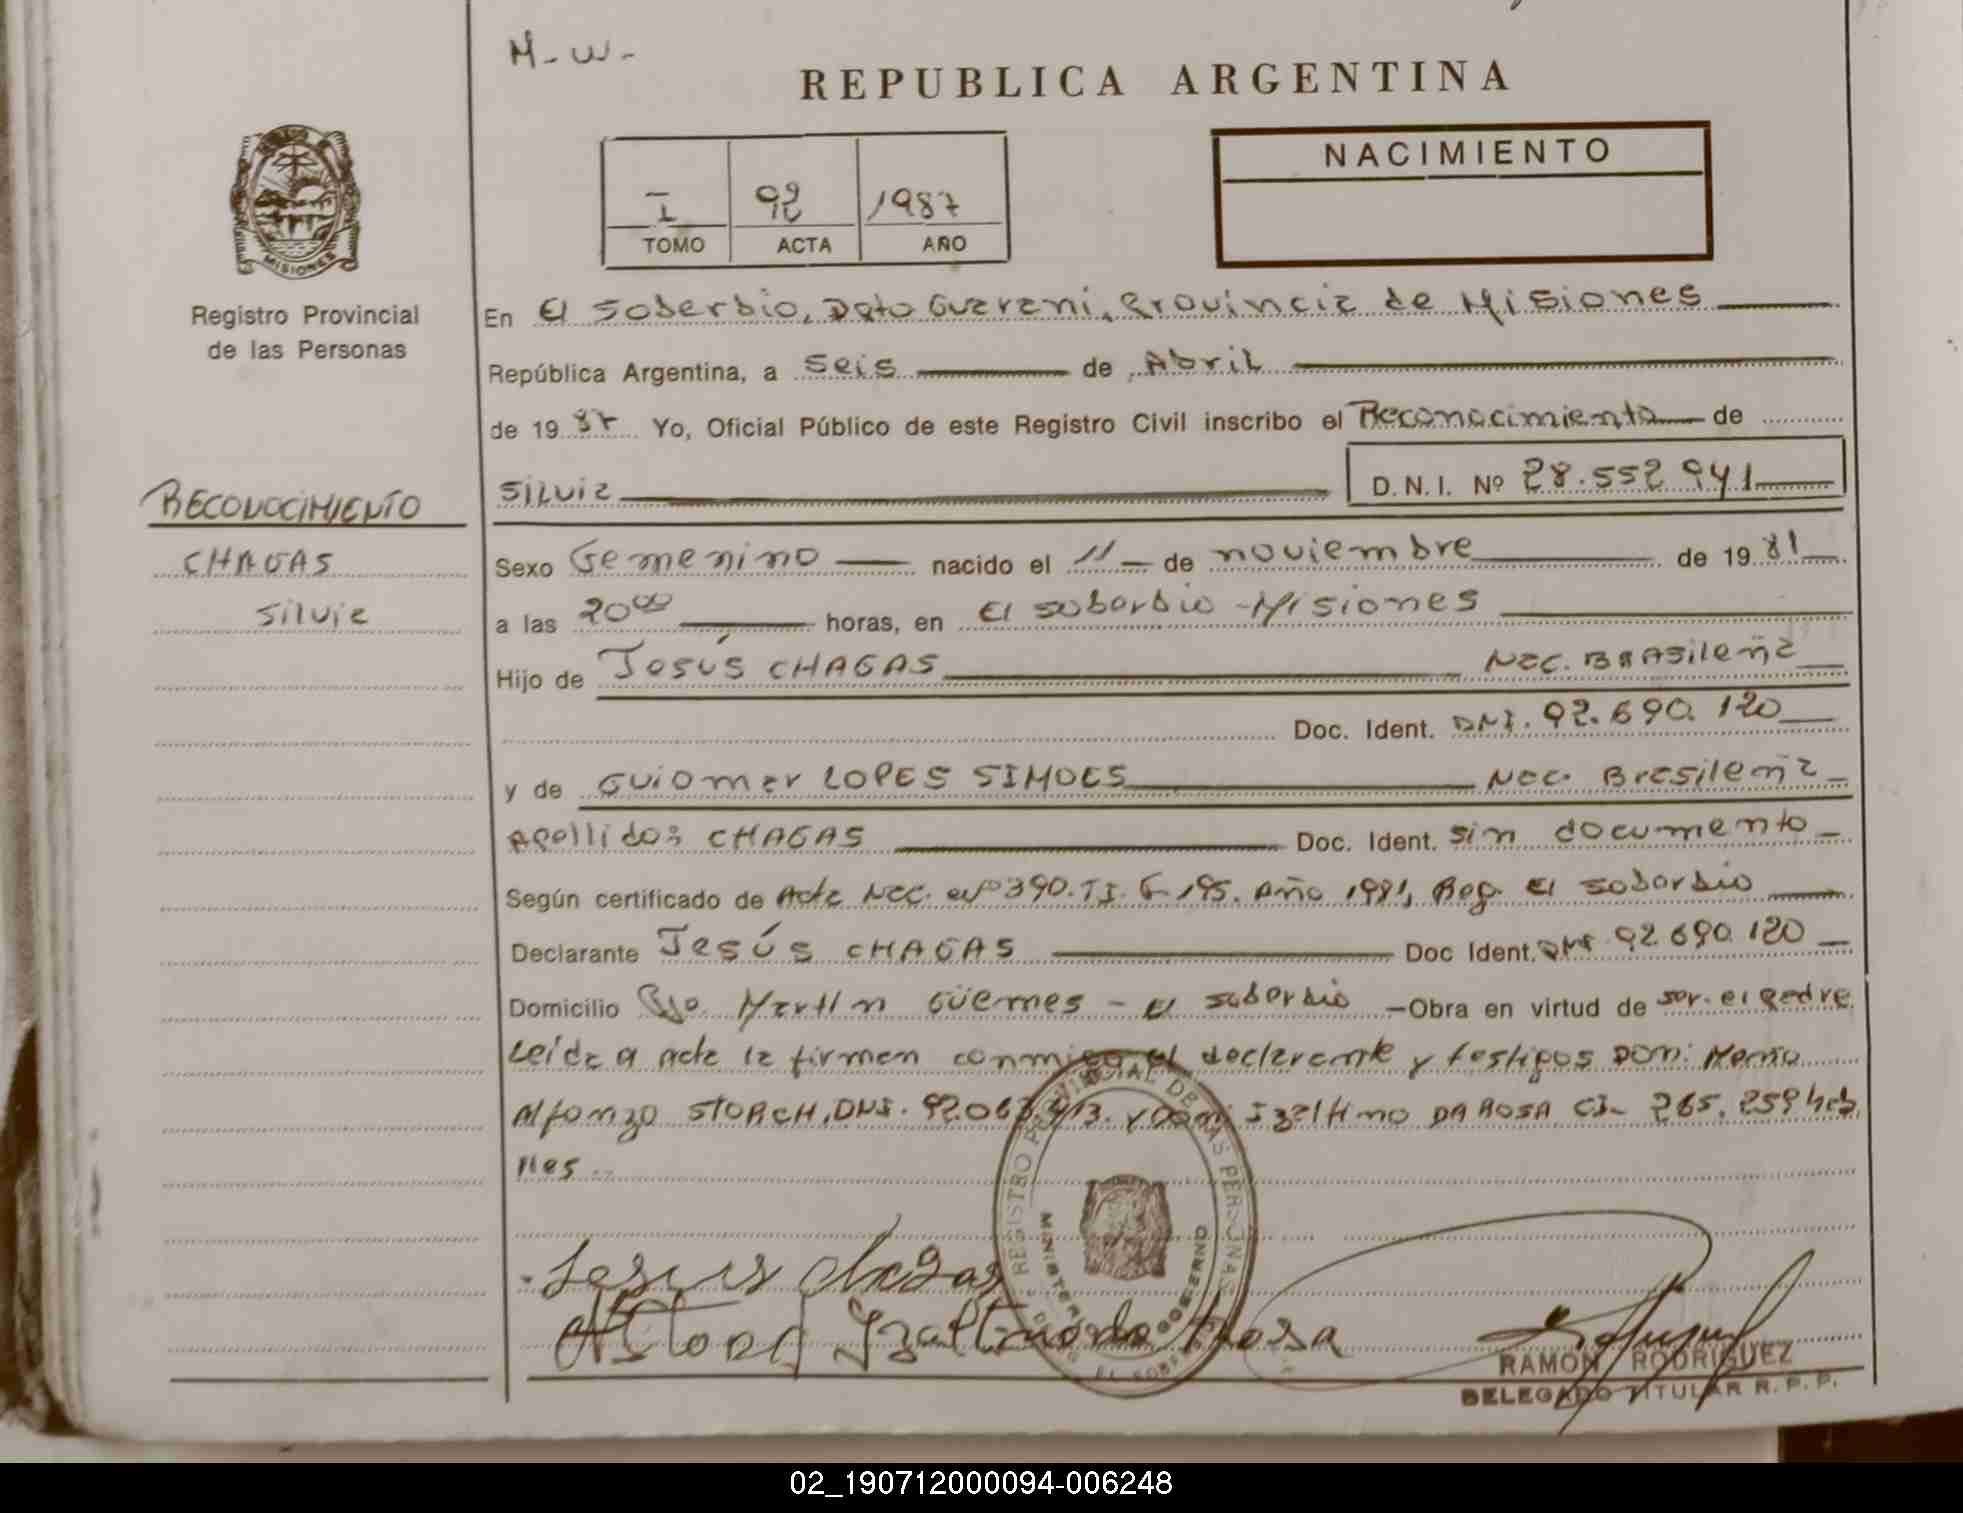 M-W-
REPUBLICA ARGENTINA
NACIMIENTO
I 92 1987
TOMO ACTA AÑO
MISIONES
Registro Provincial
de las Personas
En El Soberbio, Dpto Guarani, Provincia de Misiones
República Argentina, a seis de Abril
de 19 87 Yo, Oficial Público de este Registro Civil inscribo el Reconocimiento de
Silvia D.N.I. Nº 28.552.941
RECONOCIMIENTO
CHAGAS
Silvia
Sexo Femenino nacido el 11 de noviembre de 19 81
a las 20 00 horas, en El Soberbio - Misiones
Hijo de Jesús CHAGAS Nac. BRASileña
Doc. Ident. DNI. 92.690.120
y de Guiomar LOPES SIMOES Nac. Brasileña
Apellidos CHAGAS Doc. Ident. sin documento
Según certificado de Acta Nac. Nº 390. TI. F-195. Año 1981, Reg. El Soberbio
Declarante Jesús CHAGAS Doc Ident. DNI 92.690.120
Domicilio Pje. Martin Güemes - El Soberbio -Obra en virtud de ser el padre
Leída el acta la firman conmigo el declarante y testigos Don:
Alfonzo STORCH, DNI. 92.063.413. y Don: Izaltino DA ROSA CI- 265.259
nes..
REGISTRO PROVINCIAL DE LAS PERSONAS
MINISTERIO DE GOBIERNO
EL SOBERBIO
Jesus chagas
AStorch Izaltino da Rosa
RAMON RODRIGUEZ
DELEGADO TITULAR R.P.P.
02_190712000094-006248